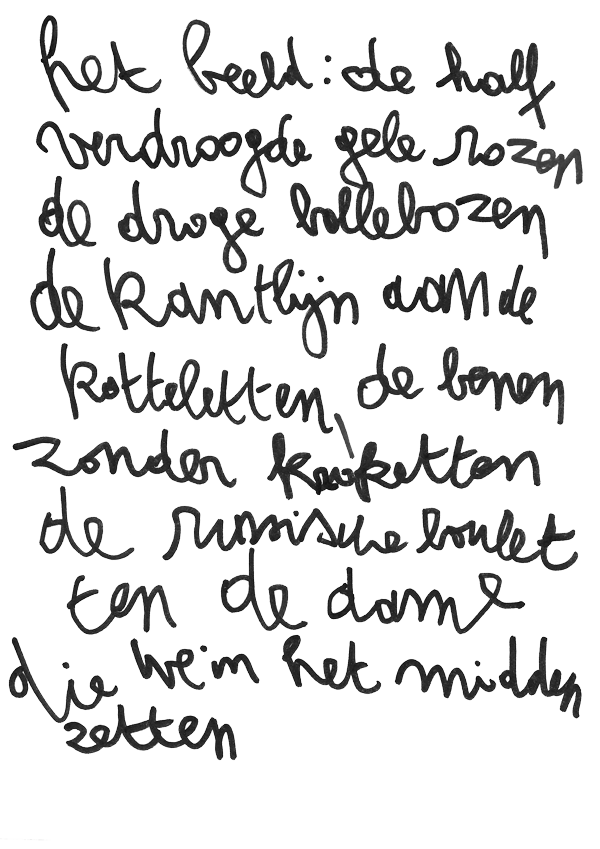 het beeld: de half
verdroogde gele rozen
de droge bollebozen
de kantlijn aan de
kotteletten, de bonen
zonder kroketten
de russische boulet
ten de dame
die we in het midden
zetten